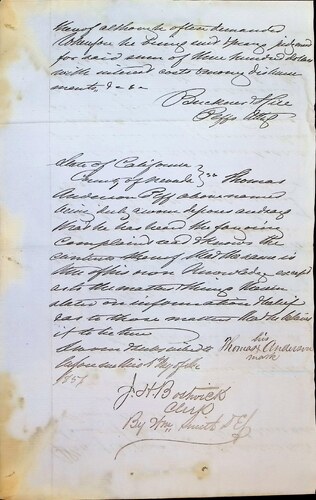 thereof although often demanded
Wherefore he being suit prays judgmt
for said sum of three hundred dollars
with interest costs among disburse
ments, &c &c
Buckner & Hill
Plffs Attys
State of California
County of Nevada } ss Thomas
Anderson Plff above named
being duly sworn deposes and says
that he has heard the foregoing
complaint read & knows the
contents thereof that the same is
true of his own knowledge except
as to the matters & things therein
stated on information & belief
& as to those matters that he believes
it to be true
Sworn & subscribed to
before me this 1st day of
1857
his
Thomas x Anderson
mark
J. H. Bostwick
Clerk
By Wm Smith D C